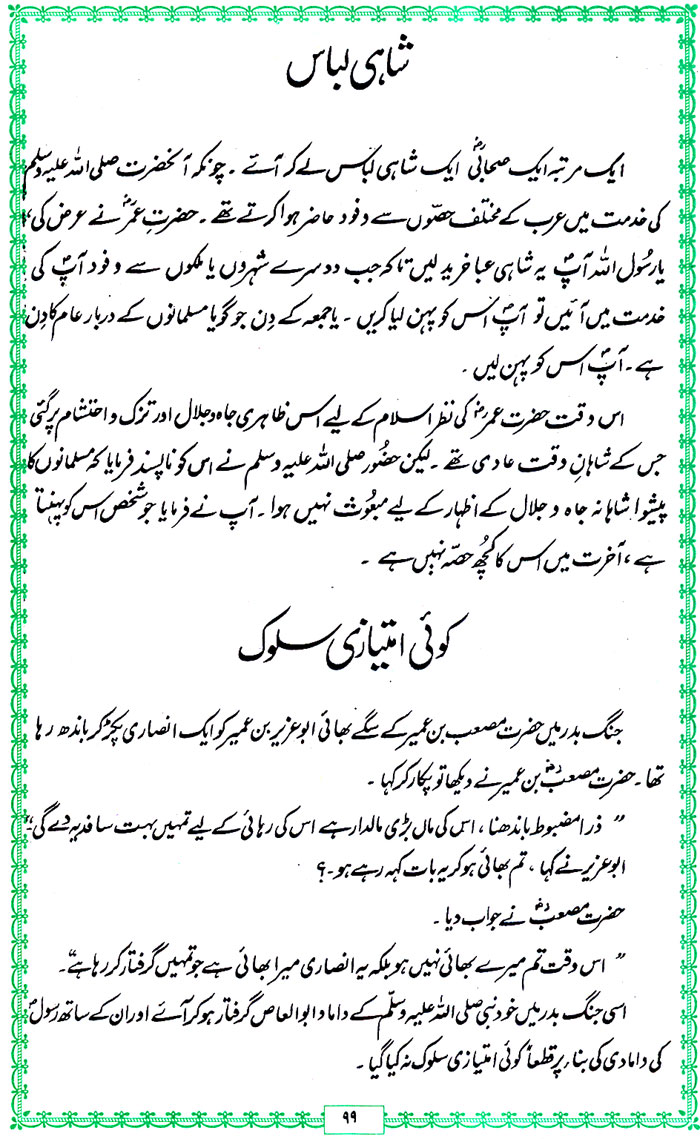 شاہی لباس
ایک مرتبہ ایک صحابیؓ ایک شاہی لباس لے کر آئے ۔ چونکہ آنحضرت صلی اللہ علیہ وسلم
کی خدمت میں عرب کے مختلف حصّوں سے وفود حاضر ہوا کرتے تھے ۔ حضرتِ عمرؓ نے عرض کی،
یا رسُول اللہ آپؐ یہ شاہی عبا خرید لیں تاکہ جب دوسرے شہروں یا ملکوں سے وفود آپؐ کی
خدمت میں آئیں تو آپؐ اس کو پہن لیا کریں ۔ یا جمعہ کے دِن جو گویا مسلمانوں کے دربار عام کا دِن
ہے ۔ آپؐ اس کو پہن لیں ۔
اس وقت حضرت عمرؓ کی نظر اسلام کے لیے اس ظاہری جاہ و جلال اور تزک و اختشام پر گئی
جس کے شاہانِ وقت عادی تھے ۔ لیکن حضُور صلی اللہ علیہ وسلم نے اس کو ناپسند فرمایا کہ مسلمانوں کا
پیشوا شاہانہ جاہ و جلال کے اظہار کے لیے مبعُوث نہیں ہوا ۔ آپ نے فرمایا جو شخص اس کو پہنتا
ہے ، آخرت میں اس کا کچُھ حصّہ نہیں ہے ۔
کوئی امتیازی سلوک
جنگ بدر میں حضرت مصعب بن عمیر کے سگے بھائی ابوعزیر بن عمیر کو ایک انصاری پکڑ کر باندھ رہا
تھا ۔ حضرت مصعبؓ بن عمیر نے دیکھا تو پکار کر کہا ۔
” ذرا مضبوط باندھنا ، اس کی ماں بڑی مالدار ہے اس کی رہائی کے لیے تمہیں بہت سا فدیہ دے گی “
ابوعزیر نے کہا ، تم بھائی ہو کر یہ بات کہہ رہے ہو ۔ ؟
حضرت مصعبؓ نے جواب دیا ۔
” اس وقت تم میرے بھائی نہیں ہو بلکہ یہ انصاری میرا بھائی ہے جو تمہیں گرفتار کر رہا ہے “۔
اسی جنگ بدر میں خود نبی صلی اللہ علیہ وسلّم کے داماد ابوالعاص گرفتار ہو کر آئے اور ان کے ساتھ رسولؐ
کی دامادی کی بناء پر قطعاً کوئی امتیازی سلوک نہ کیا گیا ۔
۹۹